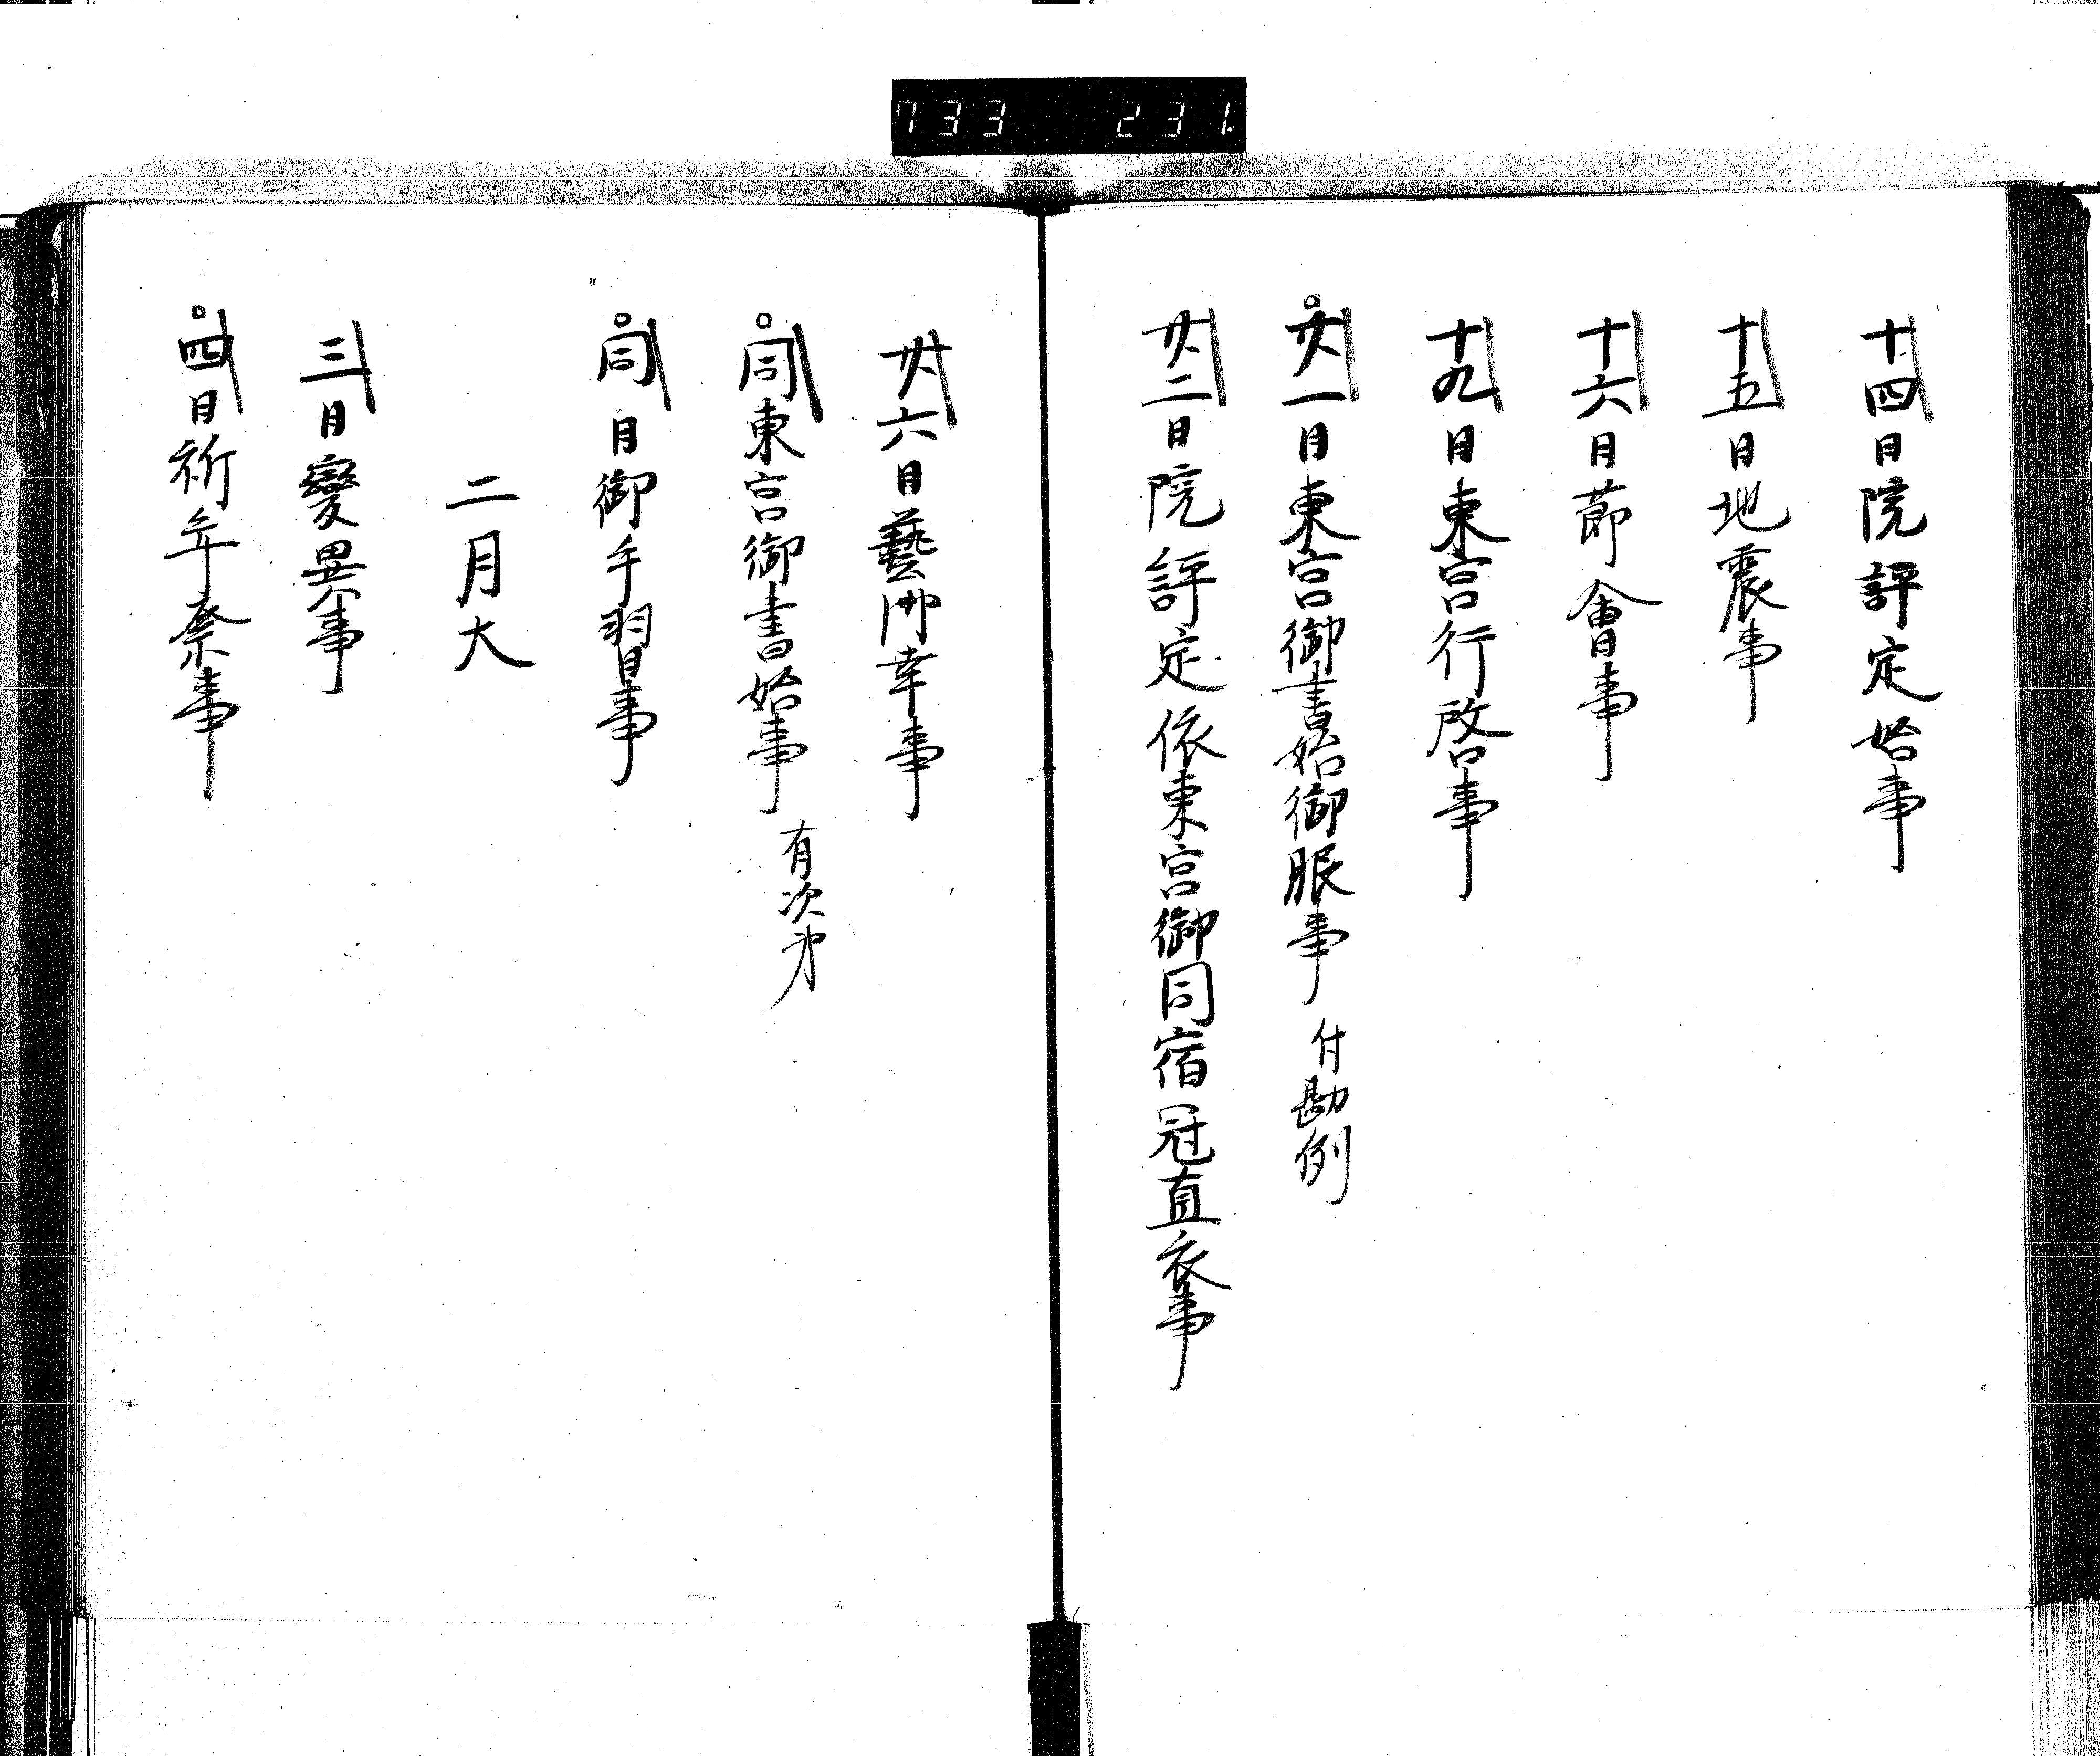 733 231
十四日院評定始事
十五日地震事
十六日節會事
十九日東宮行啓事
廿一日東宮御書始御服事 付勘例
廿二日院評定依東宮御同宿冠直衣事
廿六日藝御幸事
同東宮御書始事 有次第
同日御手習事
二月大
三日變異事
四日祈年祭事